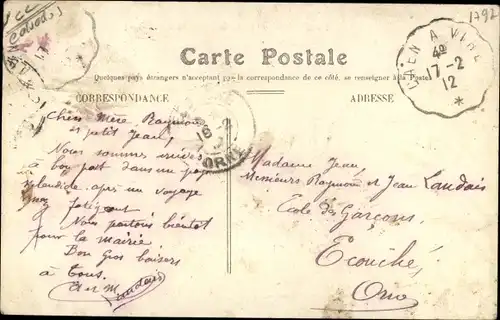 1792
CAEN A VIRE
4º
17-2
12
*
Carte Postale
Quelques pays étrangers n'acceptant pas la correspondance de ce côté, se renseigner à la Poste
CORRESPONDANCE
ADRESSE
ORNE
Chers Mère Raymond
et petit Jean,
Nous sommes arrivés
à bon port dans un pays
splendide après un voyage
fatigant
Nous partons bientôt
pour la mairie
Bon Gros baisers
à tous.
Landais
Madame Jenny
Messieurs Raymond et Jean Landais
Ecole des Garçons
Ecouché
Orne